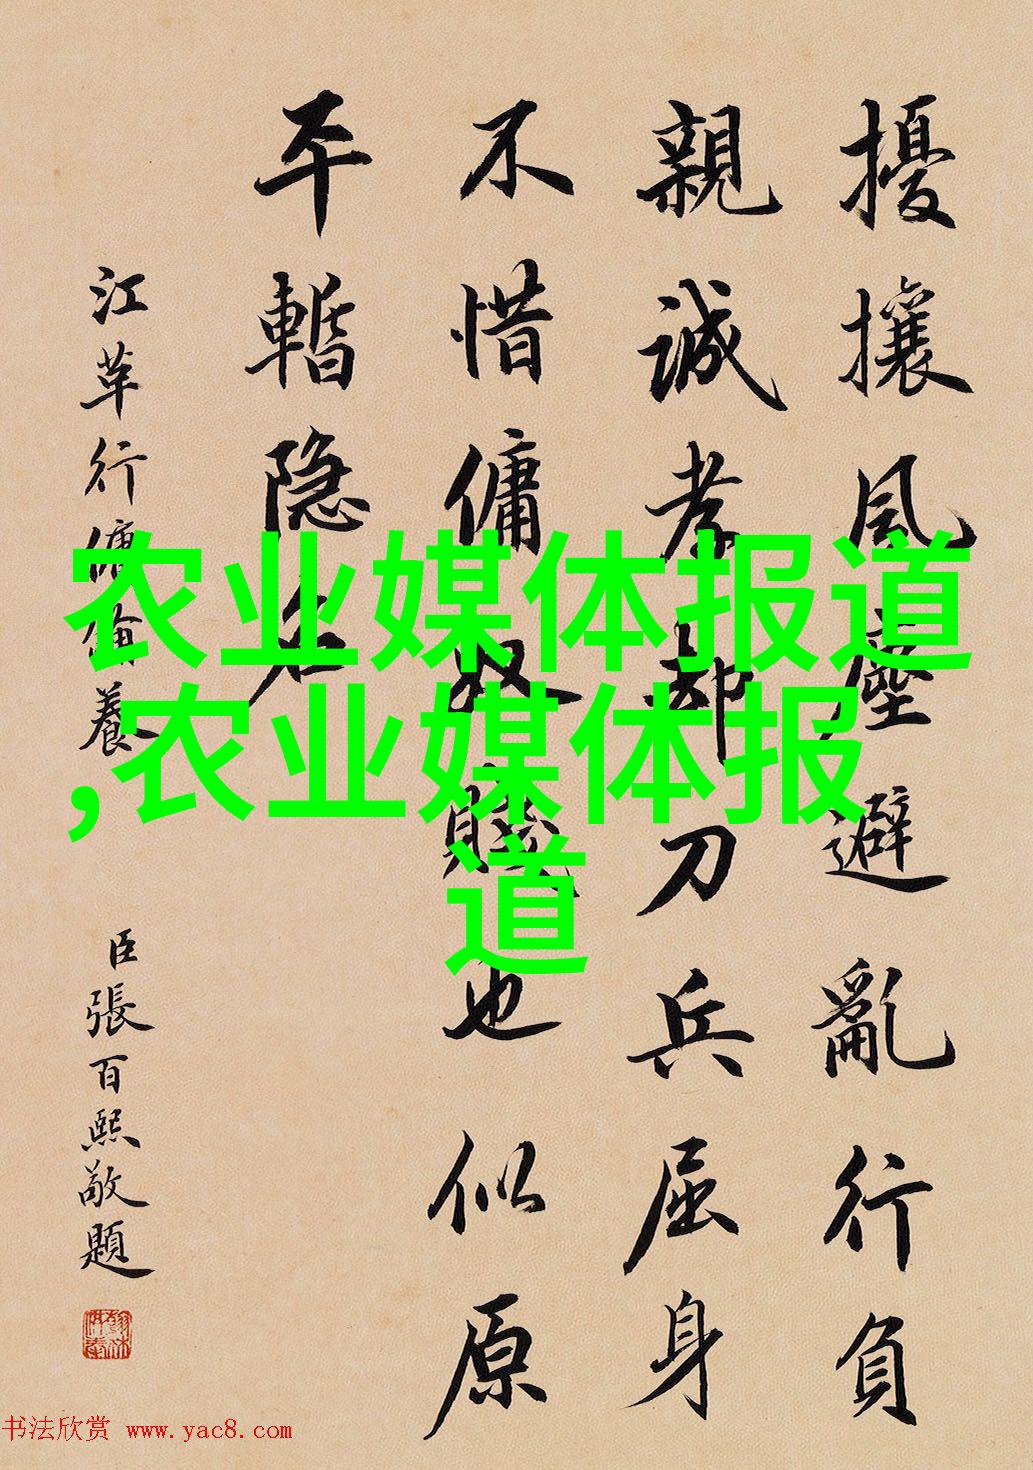 擾攘風塵避亂行負
親誠孝却刀兵屈身
不惜傭奴賤也似原
平暫隐名
江革行傭養
臣張百熙敬題
农业媒体报道
,农业媒体报
道
书法欣赏 www.yac8.com